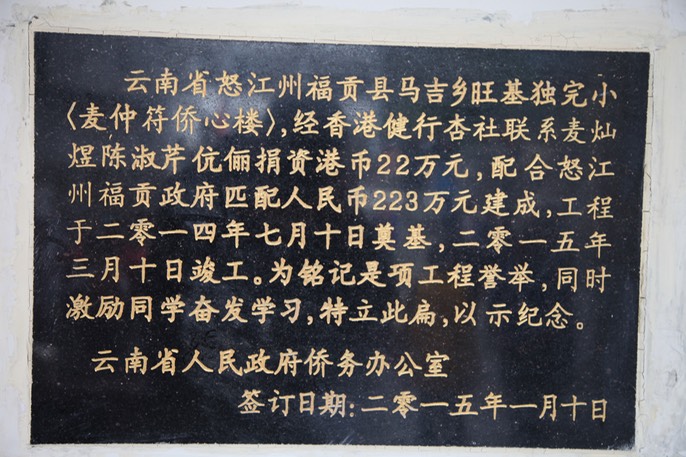 云南省怒江州福贡县马吉乡旺基独完小
〈麦仲符侨心楼〉,经香港健行杏社联系麦灿
煜陈淑芹伉俪捐资港币22万元,配合怒江
州福贡政府匹配人民币223万元建成,工程
于二零一四年七月十日奠基,二零一五年
三月十日竣工。为铭记是项工程誉举,同时
激励同学奋发学习,特立此扁,以示纪念。
云南省人民政府侨务办公室
签订日期:二零一五年一月十日